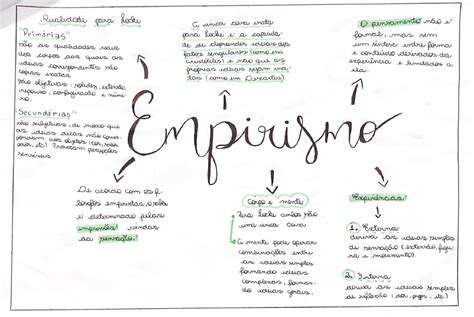 Qualidades para Locke
"Primárias"
são as qualidades reais
dos corpos das quais as
ideias correspondentes são
cópias exatas.
São objetivas: solidez, extensão,
repouso, configuração e núme
ro.
"Secundárias"
são subjetivas, de modo que
as ideias delas não corres
pondem aos objetos (cor, sabor,
odor, etc). Provocam percepções
sensórias.
A única coisa inata
para Locke é a capacida
de de depreender ideias dos
fatos singulares (como em
Aristóteles) e não que as
próprias ideias sejam ina
tas (como em Descartes)
O pensamento não é
formal, mas sim
um síntese entre forma
e conteúdo derivados da
experiência e limitados a
ela.
Empirismo
De acordo com os fi
lósofos empiristas, o saber
é determinado pelas
impressões vindas
da sensação.
Corpo e mente
Para Locke ambos são
uma única coisa
A mente pode operar
combinações entre
as ideias simples
formando ideias
complexas, forman
do ideias gerais.
Experiências
1. Externa
deriva as ideias simples
de sensação (extensão, figu
ra e movimento).
2. Interna
deriva as ideias simples
de reflexão (dor, prazer, etc)